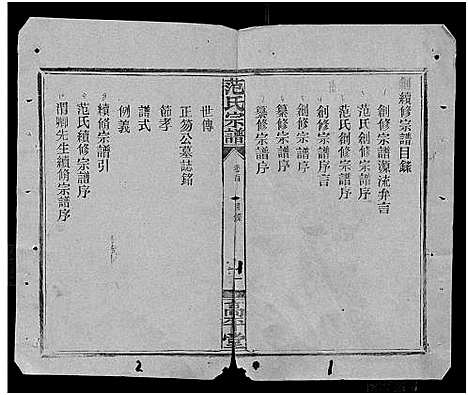 創續修宗譜目錄
創修宗譜源流弁言
范氏創修宗譜序
范氏創修宗譜序
創修宗譜序言
創修宗譜序
纂修宗譜序
纂修宗譜序
范氏宗譜
卷首
堂
世傳
正笏公墓誌銘
節孝
譜式
例義
續脩宗譜引
范氏續修宗譜序
渭卿先生續脩宗譜序
2
1